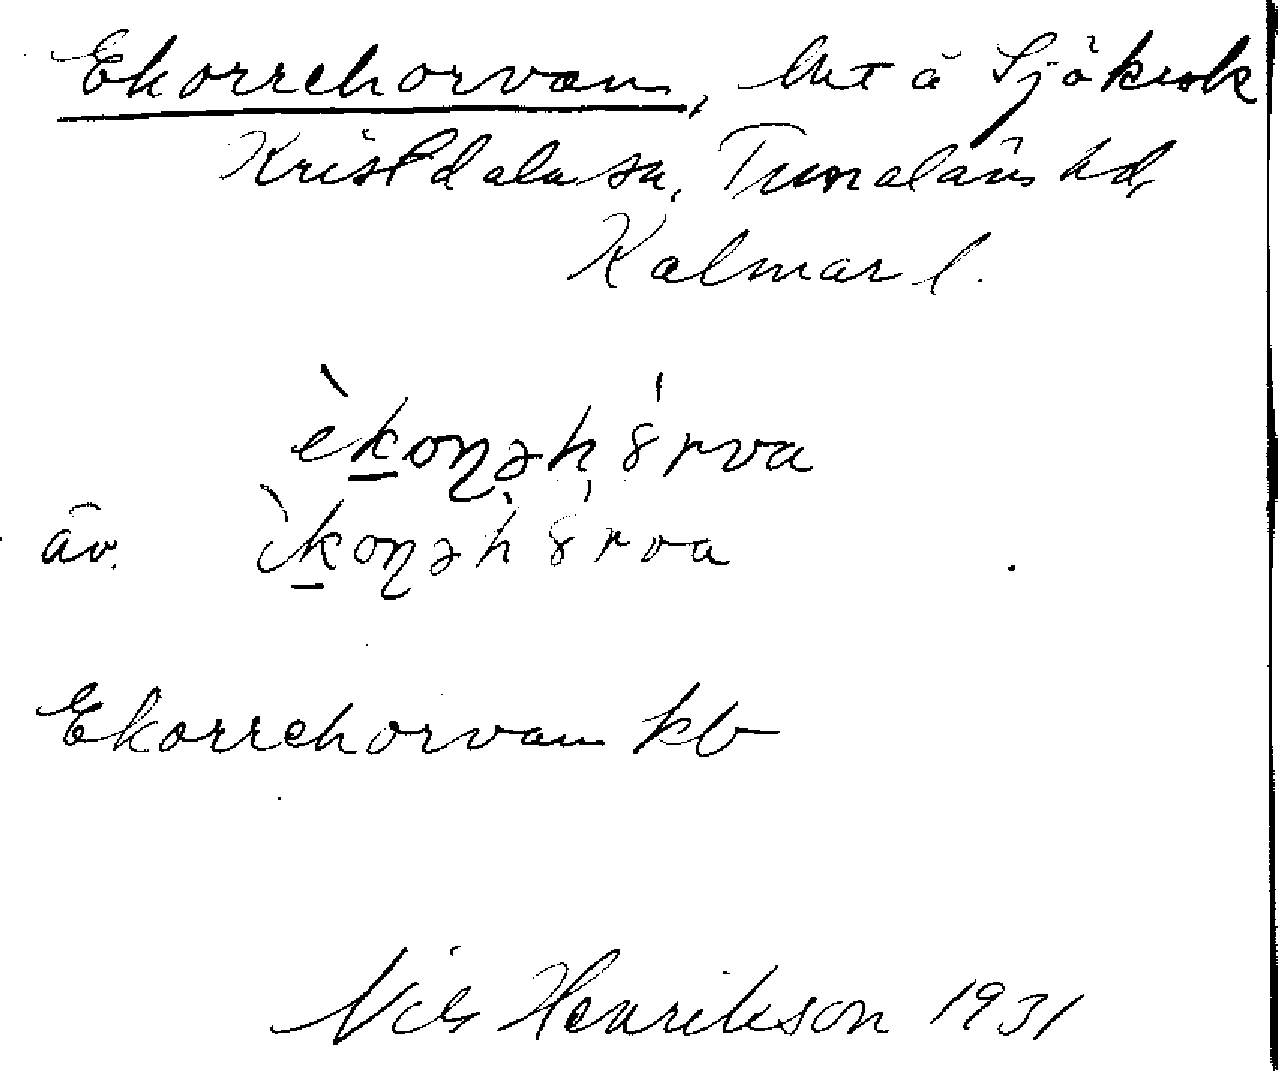 Ekorrehorvan, lht å Sjökrok
Kristdala sn, Tunaläns hd,
Kalmar l.
èkoꞃəhȣ́rva
äv. ìkoꞃəhȣ́rva
Ekorrehorvan kb
Nils Henrikson 1931